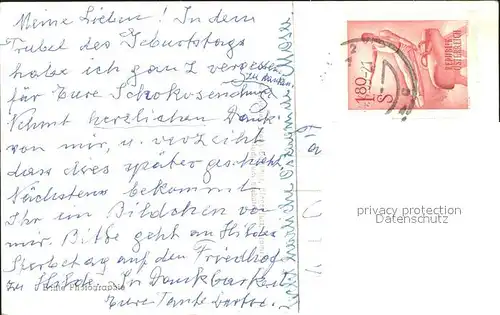 Meine Lieben! In dem
Trubel des Geburtstags
habe ich ganz vergessen
zu danken
für Eure Schokosendung
Nehmt herzlichen Dank
von mir, u. verzeiht
dass dies später geschieht
Nächstens bekommt
Ihr ein Bildchen von
mir. Bitte geht an Hildes
Sterbetag auf den Friedhof
zu Hilde. In Dankbarkeit
Eure Tante
Echte Photographie
REPUBLIK
ÖSTERREICH
1.80
S
privacy protection
Datenschutz